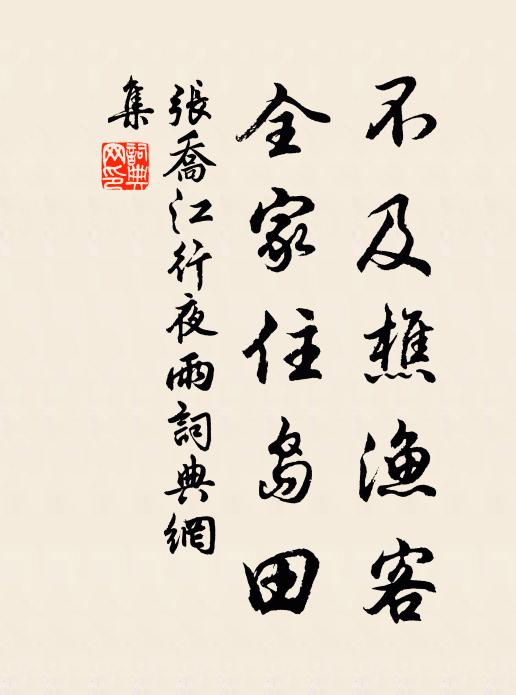 不及樵漁客
全家住島田
張喬江行夜雨詞典網
集
詞典
网印